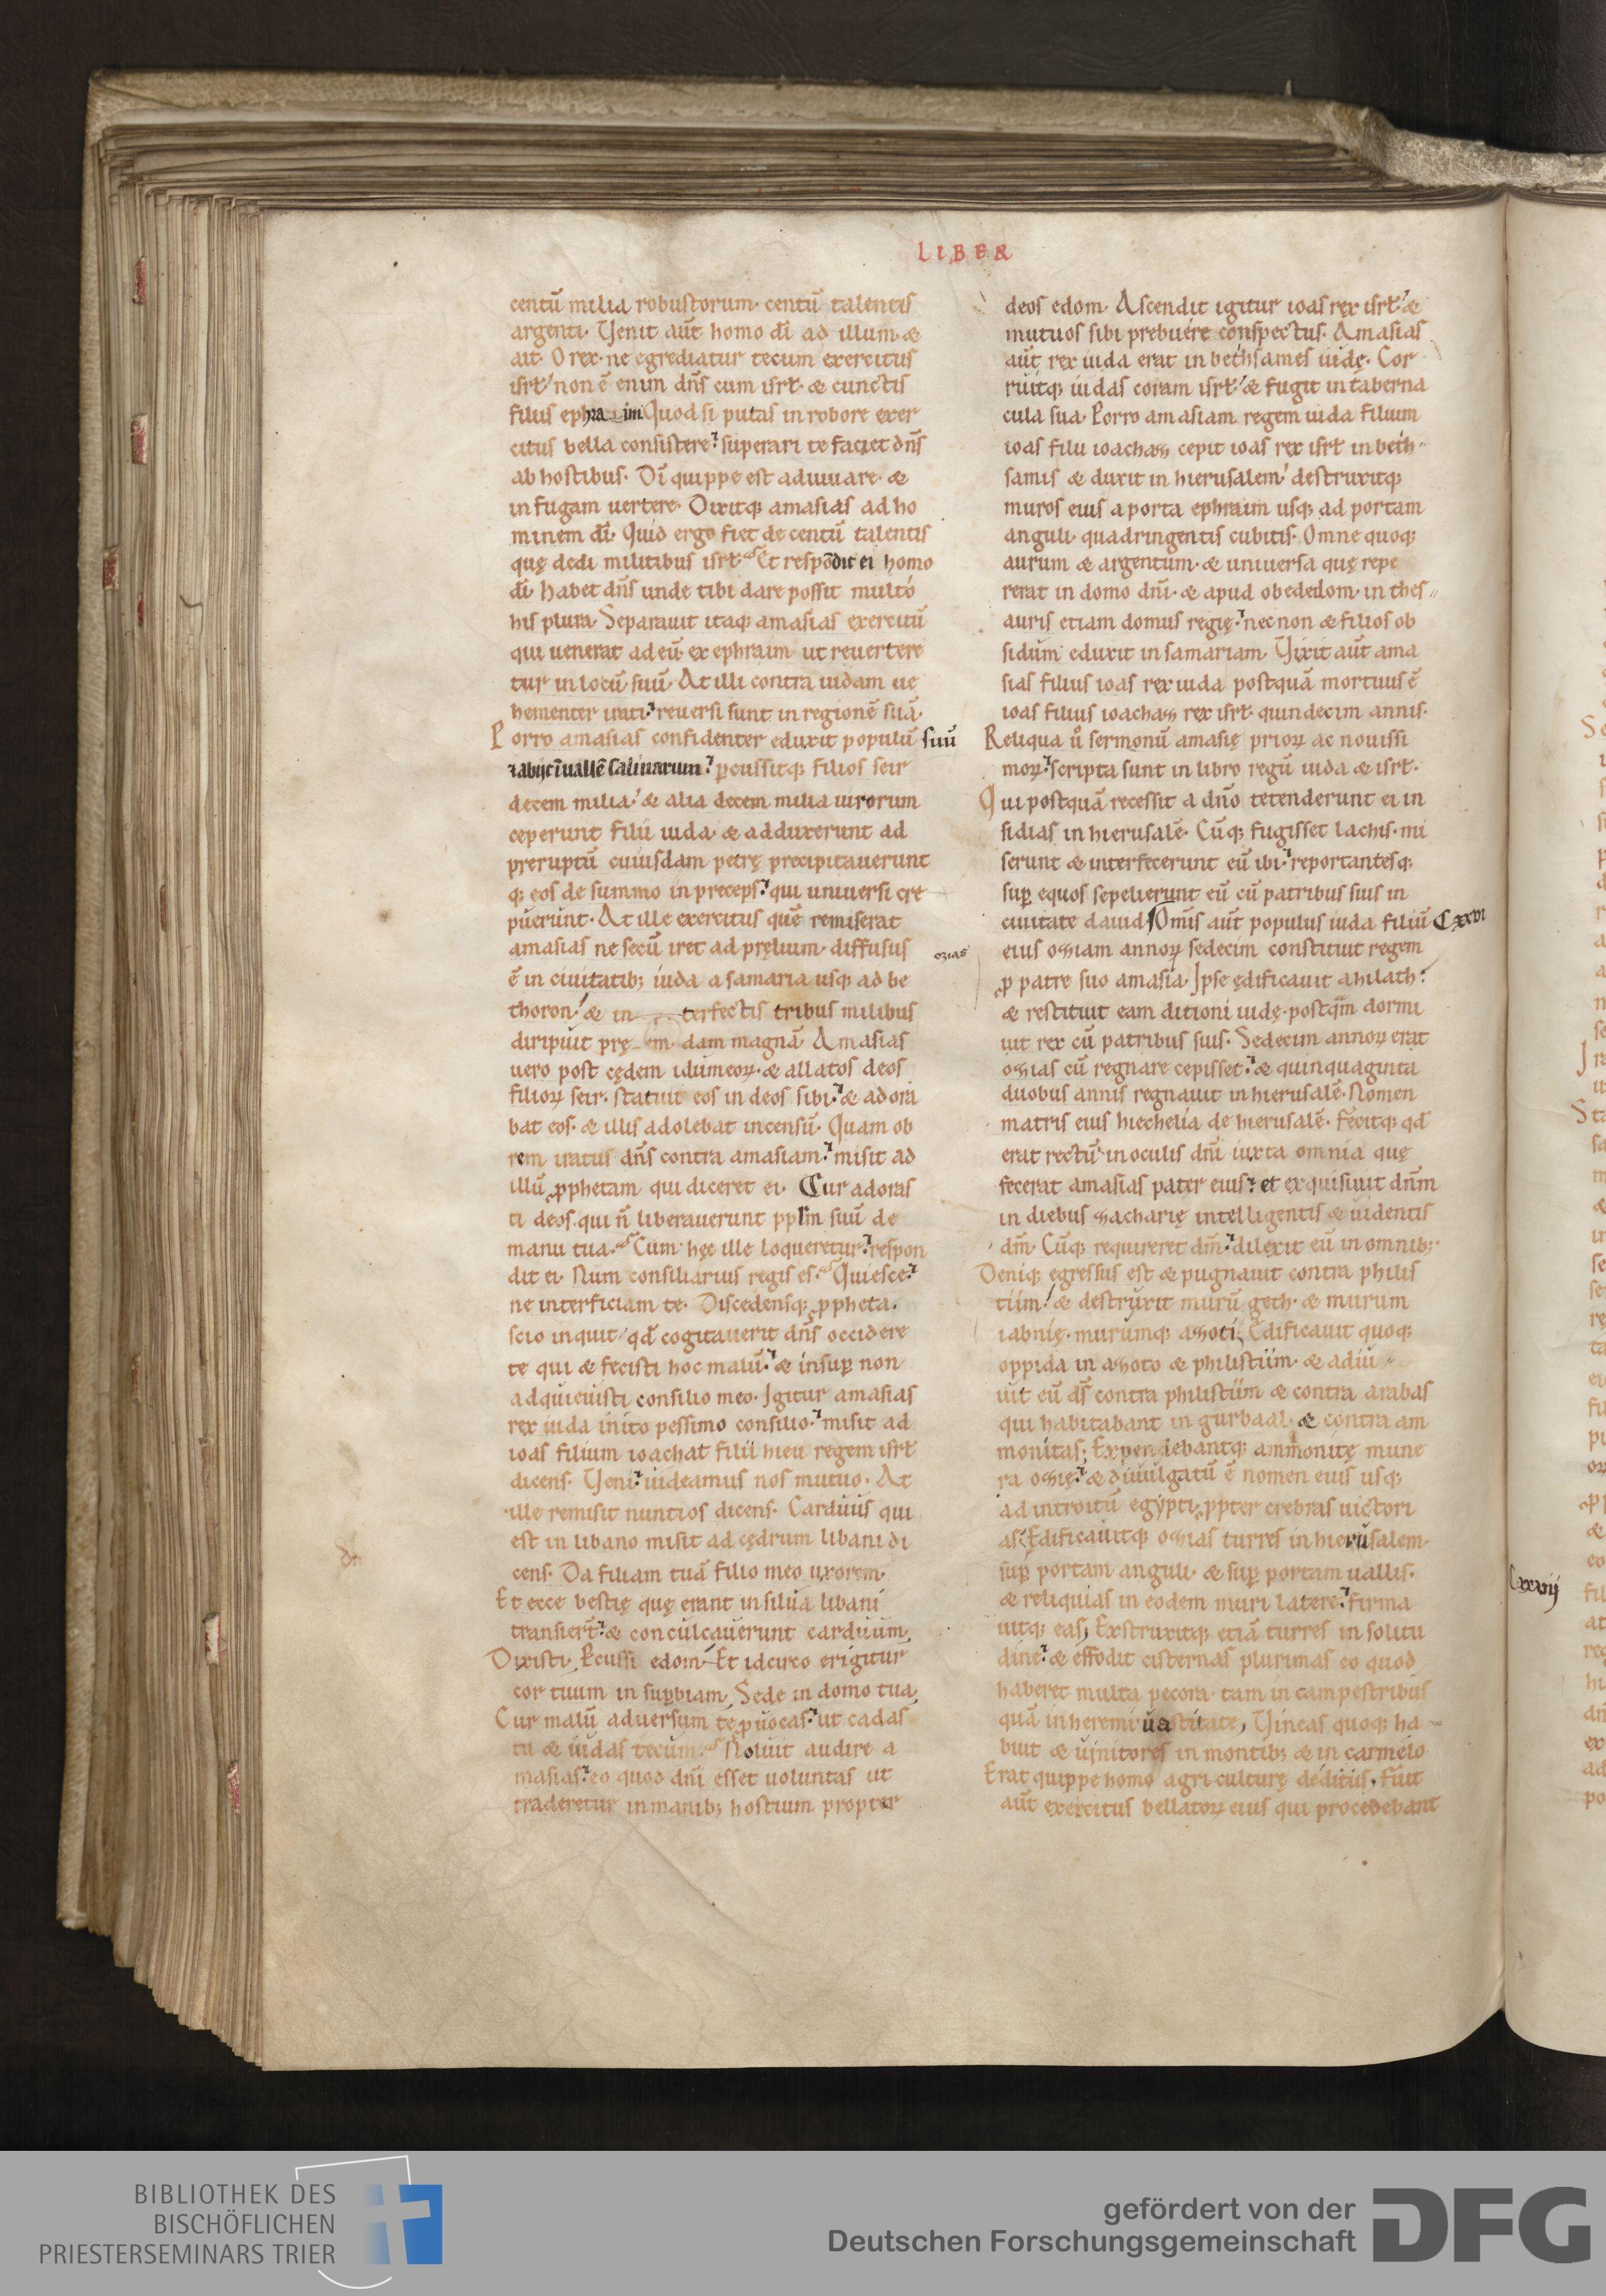 LIBER
centū milia robustorum· centū talentis
argenti· Venit aūt homo dī ad illum· &
ait· O rex· ne egrediatur tecum exercitus
isrł· non ē enim dn̄s cum isrł· & cunctis
filiis ephraim Quod si putas in robore exer
citus bella consistere· superari te faciet dn̄s
ab hostibus· Dī quippe est adiuuare· &
in fugam uertere· Dixitq; amasias ad ho
minem dī· Quid ergo fiet de centū talentis
quę dedi militibus isrł· Et respōdit ei homo
dī· Habet dn̄s unde tibi dare possit multo
his plura· Separauit itaq; amasias exercitū
qui uenerat ad eū ex ephraim ut reuertere
tur in locū suū· At illi contra iudam ue
hementer irati· reuersi sunt in regionē suā·
Porro amasias confidenter eduxit populū suū
⁊ abijt ī uallē salinarum· ꝑcussitq; filios seir
decem milia· & alia decem milia uirorum
ceperunt filii iuda· & adduxerunt ad
preruptū cuiusdam petrę precipitauerunt
q; eos de summo in preceps· qui uniuersi cre
puerunt· At ille exercitus quē remiserat
amasias ne secū iret ad pręlium· diffusus
ē in ciuitatib; iuda a samaria usq; ad be
thoron· & in terfectis tribus milibus
diripuit prę dam magnā· Amasias
uero post cędem idumeoꝝ· & allatos deos
filioꝝ seir· statuit eos in deos sibi· & adora
bat eos· & illis adolebat incensū· Quam ob
rem iratus dn̄s contra amasiam· misit ad
illū ꝓphetam qui diceret ei· Cur adoras
ti deos qui n̄ liberauerunt pplm̄ suū de
manu tua· Cum hęc ille loqueretur· respon
dit ei· Num consiliarius regis es· Quiesce·
ne interficiam te· Discedensq; ꝓpheta·
scio inquit· qđ cogitauerit dn̄s occidere
te qui & fecisti hoc malū· & insuꝑ non
adquieuisti consilio meo· Igitur amasias
rex iuda inito pessimo consilio· misit ad
ioas filium ioachat filii hieu regem isrł
dicens· Veni· uideamus nos mutuo· At
ille remisit nuntios dicens· Carduus qui
est in libano misit ad cędrum libani di
cens· Da filiam tuā filio meo uxorem·
Et ecce bestię quę erant in silua libani
transier̄t· & conculcauerunt carduum·
Dixisti· Ꝑcussi edom· Et idcirco erigitur
cor tuum in suꝑbiam· Sede in domo tua·
Cur malū aduersum te ꝓuocas· ut cadas
tu & iudas tecum· Noluit audire a
masias· eo quod dn̄i esset uoluntas ut
traderetur in manib; hostium propter
ozias
deos edom· Ascendit igitur ioas rex isrł· &
mutuos sibi prebuere conspectus· Amasias
aūt rex iuda erat in bethsames iudę· Cor
ruitq; iudas coram isrł· & fugit in taberna
cula sua· Porro amasiam regem iuda filium
ioas filii ioachaz cepit ioas rex isrł in beth
samis & duxit in hierusalem· destruxitq;
muros eius a porta ephraim usq; ad portam
anguli· quadringentis cubitis· Omne quoq;
aurum & argentum· & uniuersa quę repe
rerat in domo dn̄i· & apud obededom· in thes
auris etiam domus regię· nec non & filios ob
sidum eduxit in samariam· Vixit aūt ama
sias filius ioas rex iuda postquā mortuus ē
ioas filius ioachaz rex isrł quindecim annis·
Reliqua ů sermonū amasię prioꝝ ac nouissi
moꝝ· scripta sunt in libro regū iuda & isrł·
Qui postquā recessit a dn̄o tetenderunt ei in
sidias in hierusalē· Cūq; fugisset lachis· mi
serunt & interfecerunt eū ibi· reportantesq;
suꝑ equos sepelierunt eū cū patribus suis in
ciuitate dauid· Om̄is aūt populus iuda filiū
Cxxvi
eius oziam annoꝝ sedecim constituit regem
ꝓ patre suo amasia· Ipse ędificauit ahilath·
& restituit eam ditioni iudę· postq̄m dormi
uit rex cū patribus suis· Sedecim annoꝝ erat
ozias cū regnare cepisset· & quinquaginta
duobus annis regnauit in hierusalē· Nomen
matris eius hiechelia de hierusalē· Fecitq; qđ
erat rectū in oculis dn̄i iuxta omnia quę
fecerat amasias pater eius· et exquisiuit dn̄m
in diebus zacharię intelligentis & uidentis
dm̄· Cūq; requireret dm̄· dilexit eū in omnib;·
Deniq; egressus est & pugnauit contra philis
tiim· & destruxit murū geth· & murum
iabnię· murumq; azoti· Ędificauit quoq;
oppida in azoto & philistiim· & adiu
uit eū ds̄ contra philistiim & contra arabas
qui habitabant in gurbaal· & contra am
monitas; Expendebantq; ammonitę mune
ra ozię· & diuulgatū ē nomen eius usq;
ad introitū egypti ꝓpter crebras uictori
as· Ędificauitq; ozias turres in hierusalem·
suꝑ portam anguli· & suꝑ portam uallis·
& reliquias in eodem muri latere· firma
uitq; eas; Exstruxitq; etiā turres in solitu
dine· & effodit cisternas plurimas eo quod
haberet multa pecora tam in campestribus
quā in heremi uastitate, Vineas quoq; ha
buit & uinitores in montib; & in carmelo
Erat quippe homo agriculturę deditus, Fuit
aūt exercitus bellatoꝝ eius qui procedebant
Cxxvij
BIBLIOTHEK DES
BISCHÖFLICHEN
PRIESTERSEMINARS TRIER
gefördert von der
Deutschen Forschungsgemeinschaft
DFG